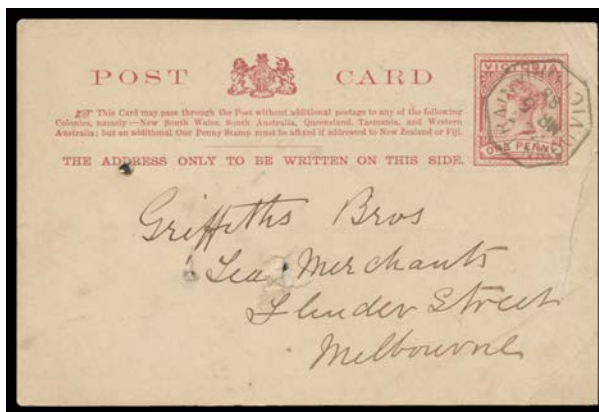 POST CARD
☞ This Card may pass through the Post without additional postage to any of the following
Colonies, namely:—New South Wales, South Australia, Queensland, Tasmania, and Western
Australia; but an additional One Penny Stamp must be affixed if addressed to New Zealand or Fiji.
THE ADDRESS ONLY TO BE WRITTEN ON THIS SIDE.
VICTORIA
ONE PENNY
Griffiths Bros
Tea Merchants
Flinder Street
Melbourne